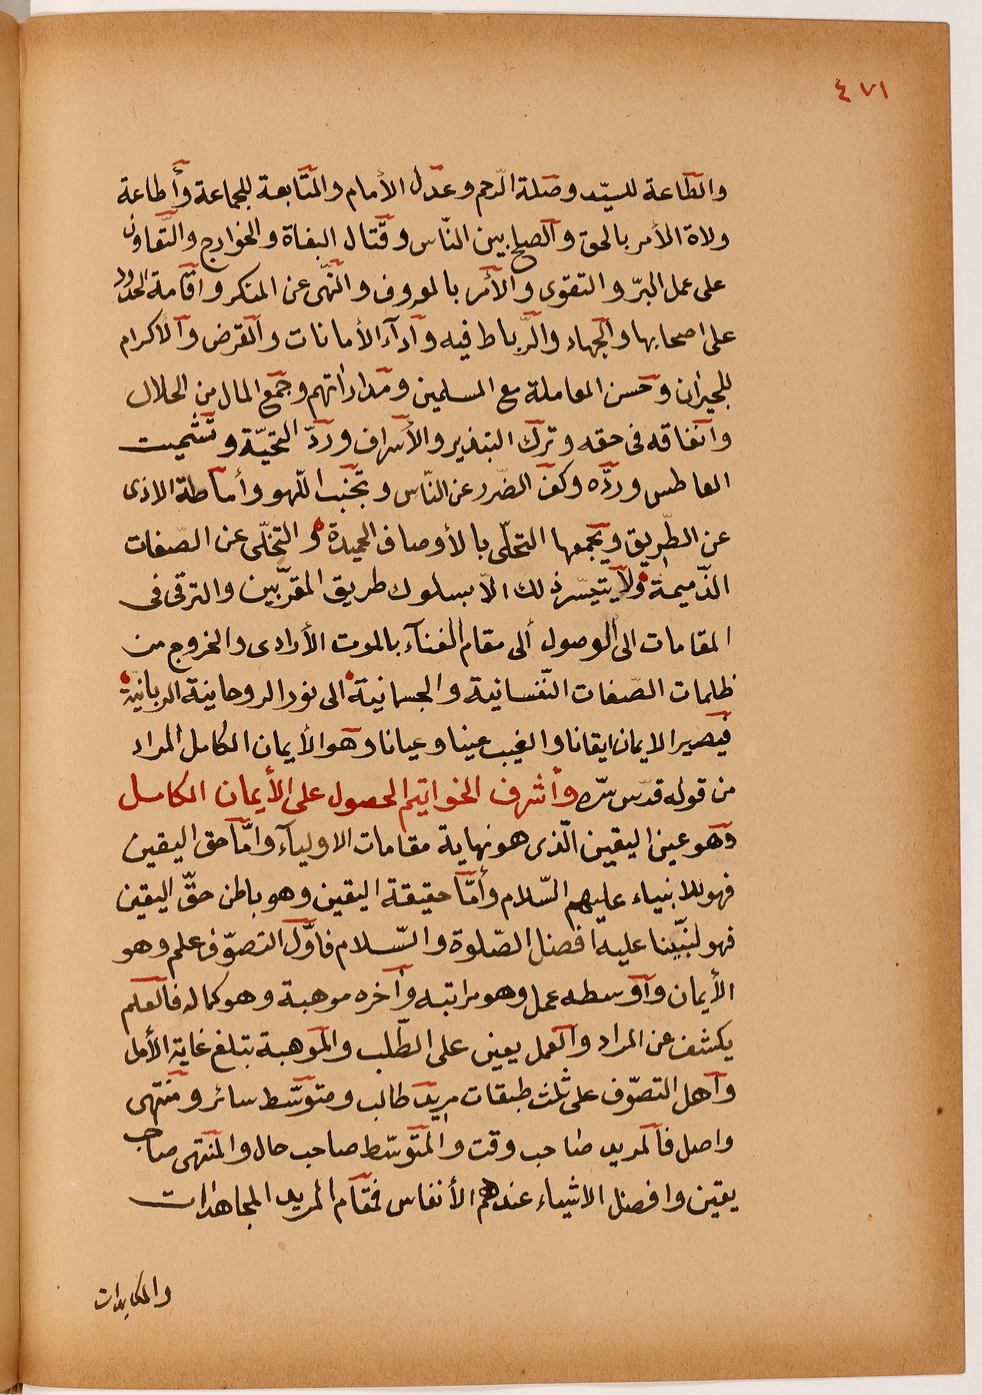 ٤٧١
والطّاعة للسيّد وصلة الرّحم وعدل الأمام والمتابعة للجماعة وأطاعة
ولاة الأمر بالحق والصلح بين النّاس وقتال البغاة والخوارج والتّعاون
على عمل البرّ والتقوى والأمر بالمعروف والنّهى عن المنكر واقامة الحدود
على اصحابها والجهاد والرّباط فيه وأدآء الأمانات والقرض والأكرام
للجيران وحسن المعاملة مع المسلمين ومداراتهم وجمع المال من الحلال
وانفاقه فى حقه وترك التبذير والأسراف وردّ التحيّة وتشميت
العاطس وردّه وكفّ الضّرر عن النّاس وتجنّب اللّهو وأماطة الاذى
عن الطّريق ويجمعها التحلّى بالأوصاف الحميدة والتخلّى عن الصّفات
الذّميمة ولا يتيسّر ذلك الاّ بسلوك طريق المقرّبين والترقى فى
المقامات الى الوصول ألى مقام الفنآء بالموت الأرادى والخروج من
ظلمات الصّفات النّفسانية والجسمانية الى نور الروحانية الربانيّة
فيصير الايمان ايقانا والغيب عينا وعيانا وهو الأيمان الكامل المراد
من قوله قدّس سرّه وأشرف الخواتيم الحصول على الأيمان الكامل
وهو عين اليقين الّذى هو نهاية مقامات الاوليآء وامّا حق اليقين
فهو للانبياء عليهم السّلام وأمّا حقيقة اليقين وهو باطن حقّ اليقين
فهو لنبيّنا عليه افضل الصّلوة والسّلام فاوّل التصوّف علم وهو
الأيمان وأوسطه عمل وهو مراتبه وأخره موهبة وهو كماله فالعلم
يكشف عن المراد والعمل يعين على الطّلب والموهبة تبلغ غاية الأمل
وأهل التصوّف على ثلث طبقات مريد طالب ومتوسّط سائر ومنتهى
واصل فالمريد صاحب وقت والمتوسّط صاحب حال والمنتهى صاحب
يقين وافضل الاشياء عندهم الأنفاس فمقام المريد المجاهدات
والمكابدات